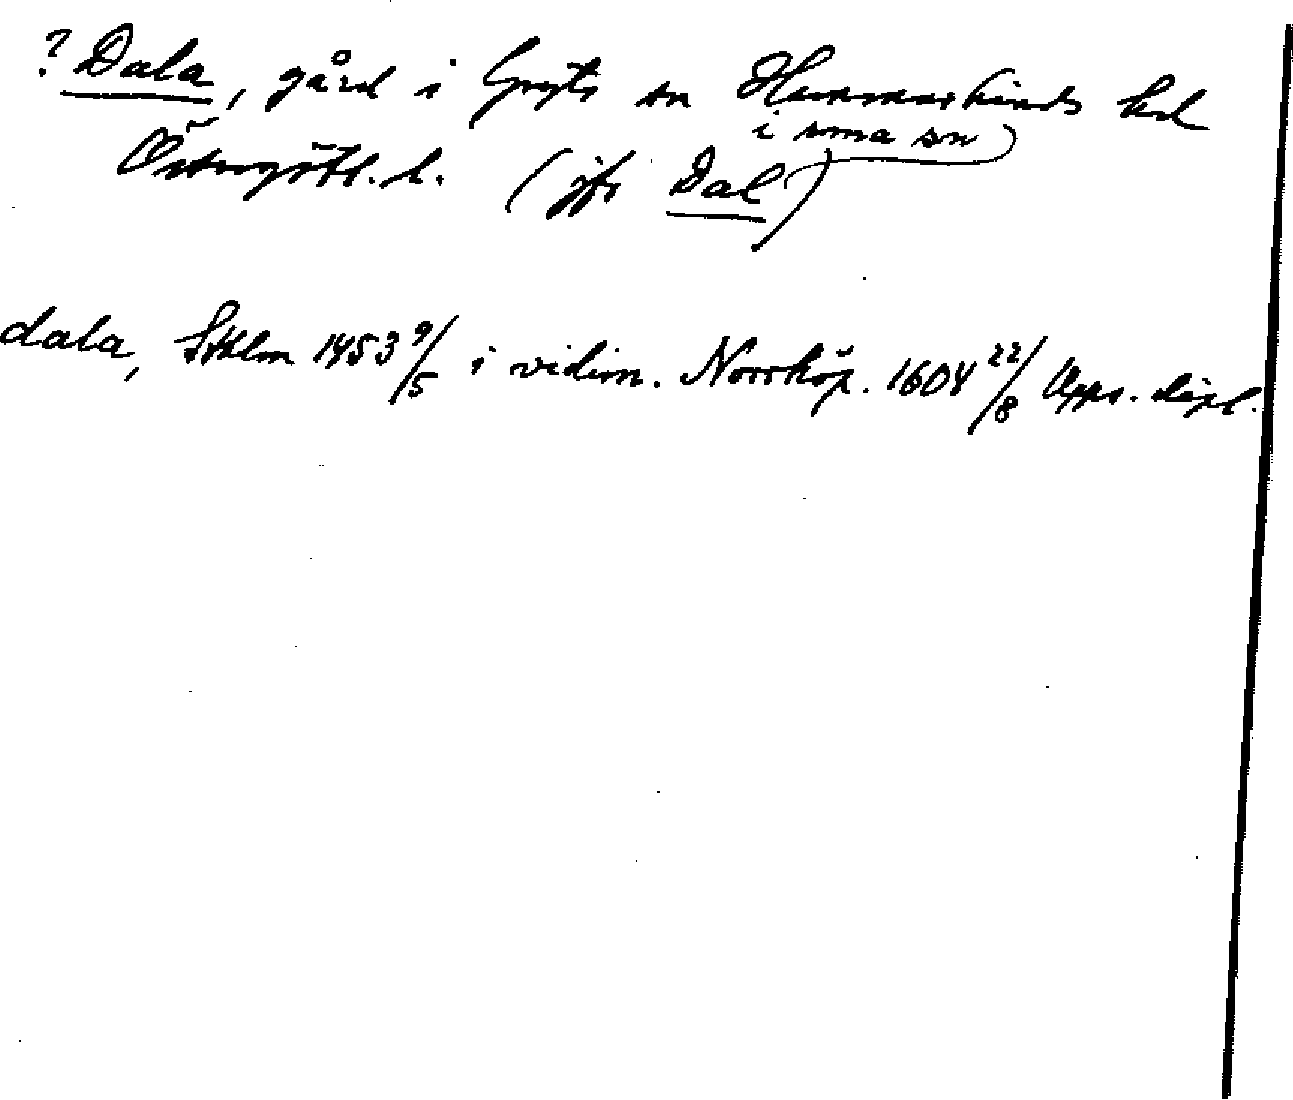 ? Dala, gård i Gryts sn Hammarkinds hd
Östergötl. l. (jfr Dal i sma sn)
dala, Sthlm 1453 9/5 i vidim. Norrköp. 1604 22/8 Upps. dipl.